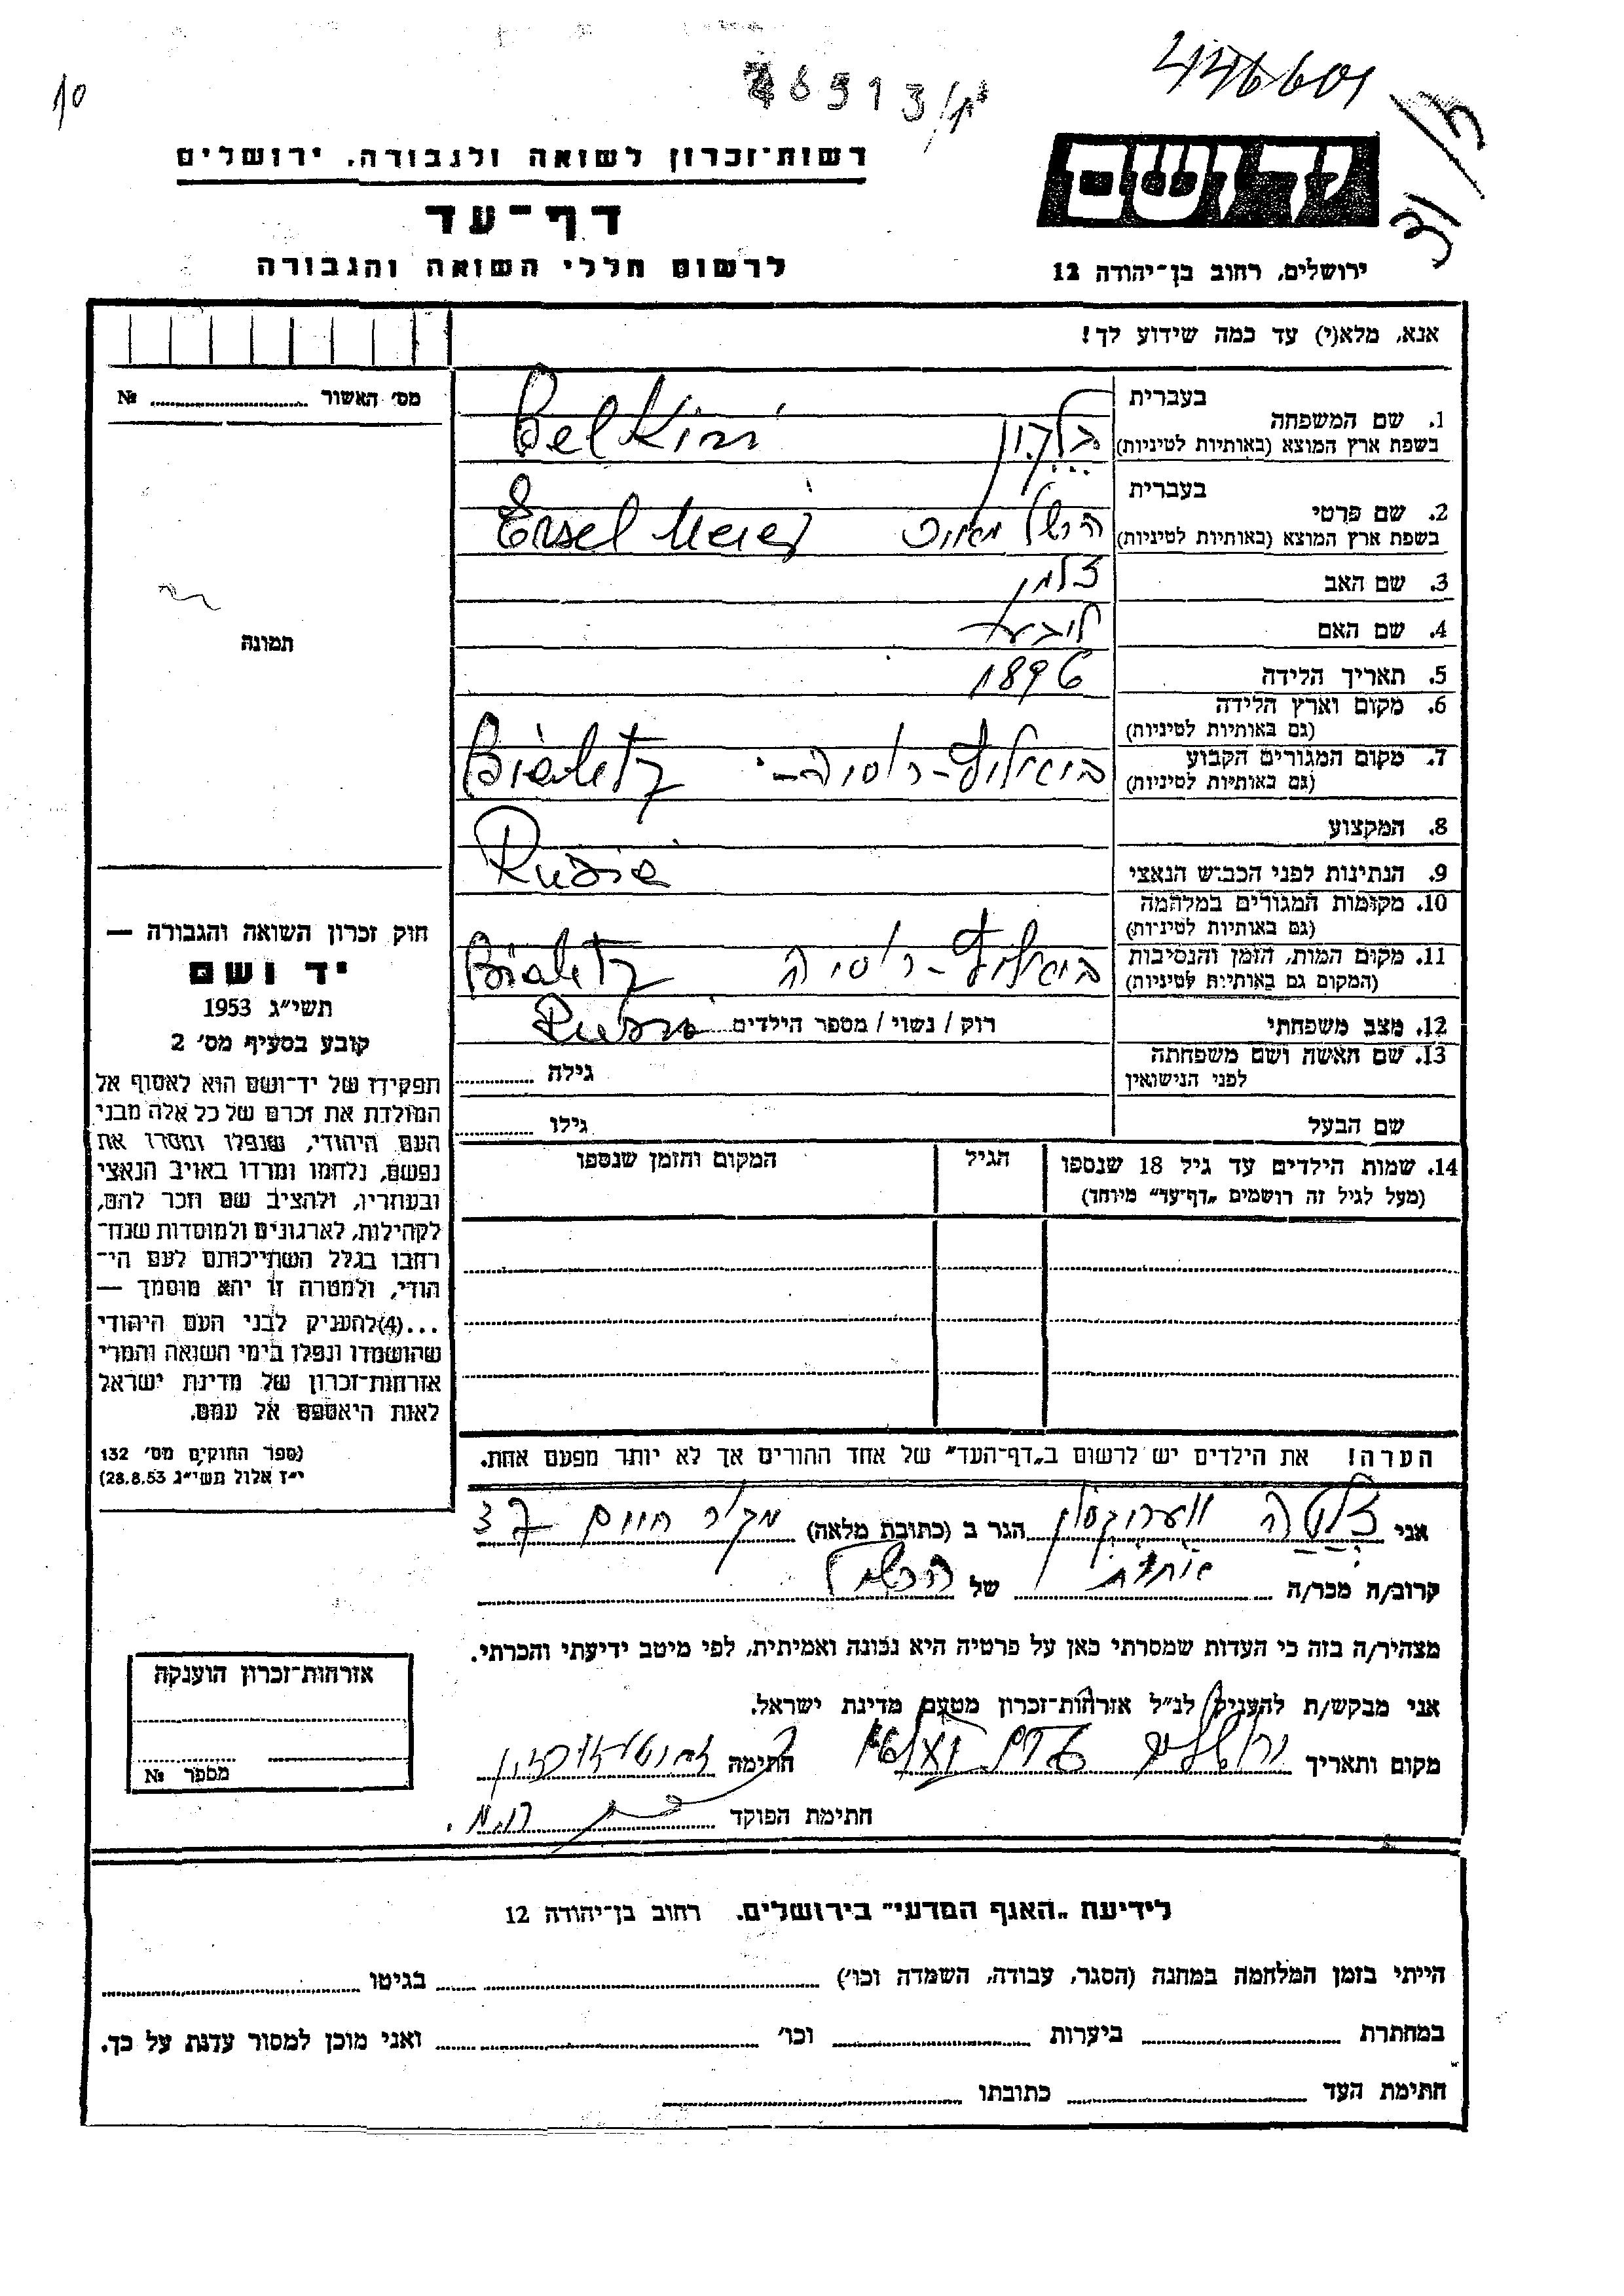 10
46913/1
446601
רשות־זכרון לשואה ולגבורה, ירושלים
דף־עד
לרשום חללי השואה והגבורה
יד ושם
ירושלים, רחוב בן־יהודה 12
אנא, מלא(י) עד כמה שידוע לך!
מס׳ האשור № 
תמונה
1. שם המשפחה
בעברית
בשפת ארץ המוצא (באותיות לטיניות)
בלקין Belkin
2. שם פרטי
בעברית
בשפת ארץ המוצא (באותיות לטיניות)
הרשל מאיר Ersel Meier
3. שם האב
זלמן
4. שם האם
ליבע
5. תאריך הלידה
1896
6. מקום וארץ הלידה
(גם באותיות לטיניות)
7. מקום המגורים הקבוע
(גם באותיות לטיניות)
רוסיה Bialetz
8. המקצוע
Rusia
9. הנתינות לפני הכבוש הנאצי
10. מקומות המגורים במלחמה
(גם באותיות לטיניות)
11. מקום המות, הזמן והנסיבות
(המקום גם באותיות לטיניות)
רוסיה Bialetz
12. מצב משפחתי
רוק / נשוי / מספר הילדים Rusia
13. שם האשה ושם משפחתה
לפני הנישואין
גילה
שם הבעל
גילו
14. שמות הילדים עד גיל 18 שנספו
(מעל לגיל זה רושמים „דף־עד” מיוחד)
הגיל
המקום והזמן שנספו
הערה! את הילדים יש לרשום ב„דף־העד” של אחד ההורים אך לא יותר מפעם אחת.
חוק זכרון השואה והגבורה —
יד ושם
תשי״ג 1953
קובע בסעיף מס׳ 2
תפקידו של יד־ושם הוא לאסוף אל
המולדת את זכרם של כל אלה מבני
העם היהודי, שנפלו ומסרו את
נפשם, נלחמו ומרדו באויב הנאצי
ובעוזריו, ולהציב שם וזכר להם,
לקהילות, לארגונים ולמוסדות שנח־
רבו בגלל השתייכותם לעם הי־
הודי, ולמטרה זו יהא מוסמך —
...(4) להעניק לבני העם היהודי
שהושמדו ונפלו בימי השואה והמרי
אזרחות־זכרון של מדינת ישראל
לאות היאספם אל עמם.
(ספר החוקים מס׳ 132
י״ז אלול תשי״ג 28.8.53)
אני זלטה הגר ב (כתובת מלאה) מקור חיים 37
קרוב/ה מכר/ה אחות של הרשל
מצהיר/ה בזה כי העדות שמסרתי כאן על פרטיה היא נכונה ואמיתית, לפי מיטב ידיעתי והכרתי.
אני מבקש/ת להעניק לנ״ל אזרחות־זכרון מטעם מדינת ישראל.
מקום ותאריך ירושלים חתימה
חתימת הפוקד
אזרחות־זכרון הוענקה
מספר №
לידיעת „האגף המדעי” בירושלים, רחוב בן־יהודה 12
הייתי בזמן המלחמה במחנה (הסגר, עבודה, השמדה וכו׳) בגיטו
במחתרת ביערות וכו׳ ואני מוכן למסור עדות על כך.
חתימת העד כתובתו